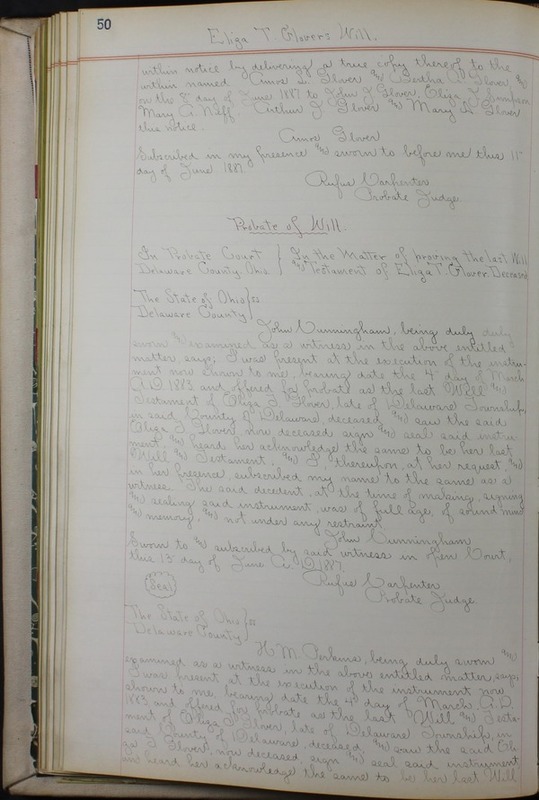 50
Eliza T. Glovers Will.
within notice by delivering a true copy thereof to the
within named Amos L. Glover and Bertha D Glover and
on the 8" day of June 1887 to John J Glover, Eliza J. Simpson
Mary A. Neff Arthur J Glover and Mary A. Glover
this notice.
Amos Glover
Subscribed in my presence and sworn to before me this 11"
day of June 1887.
Rufus Carpenter
Probate Judge
Probate of Will.
In Probate Court } In the Matter of proving the last Will
Delaware County, Ohio } and Testament of Eliza T. Glover Deceased
The State of Ohio } ss
Delaware County }
John Cunningham, being duly duly
sworn and examined as a witness in the above entitled
matter, says; I was present at the execution of the instru-
ment now shown to me, bearing date the 4" day of March
A.D. 1883 and offered for probate as the last Will and
Testament of Eliza T. Glover, late of Delaware Township,
in said County of Delaware, deceased, and saw the said
Eliza T. Glover, now deceased sign and seal said instru-
ment, and heard her acknowledge the same to be her last
Will and Testament, and I thereupon, at her request, and
in her presence, subscribed my name to the same as a
witness. The said decedent, at the time of making, signing
and sealing said instrument, was of full age, of sound mind
and memory, and not under any restraint
John Cunningham
Sworn to and subscribed by said witness in open Court,
this 13" day of June A.D. 1887.
Rufus Carpenter
Probate Judge.
Seal
The State of Ohio } ss
Delaware County }
H. M. Perkins, being duly sworn and
examined as a witness in the above entitled matter, says;
I was present at the execution of the instrument now
shown to me, bearing date the 4" day of March, A.D.
1883, and offered for probate as the last Will and Testa-
ment of Eliza T. Glover, late of Delaware Township, in
said County of Delaware, deceased, and saw the said Eli-
za T. Glover, now deceased sign and seal said instrument,
and heard her acknowledge the same to be her last Will